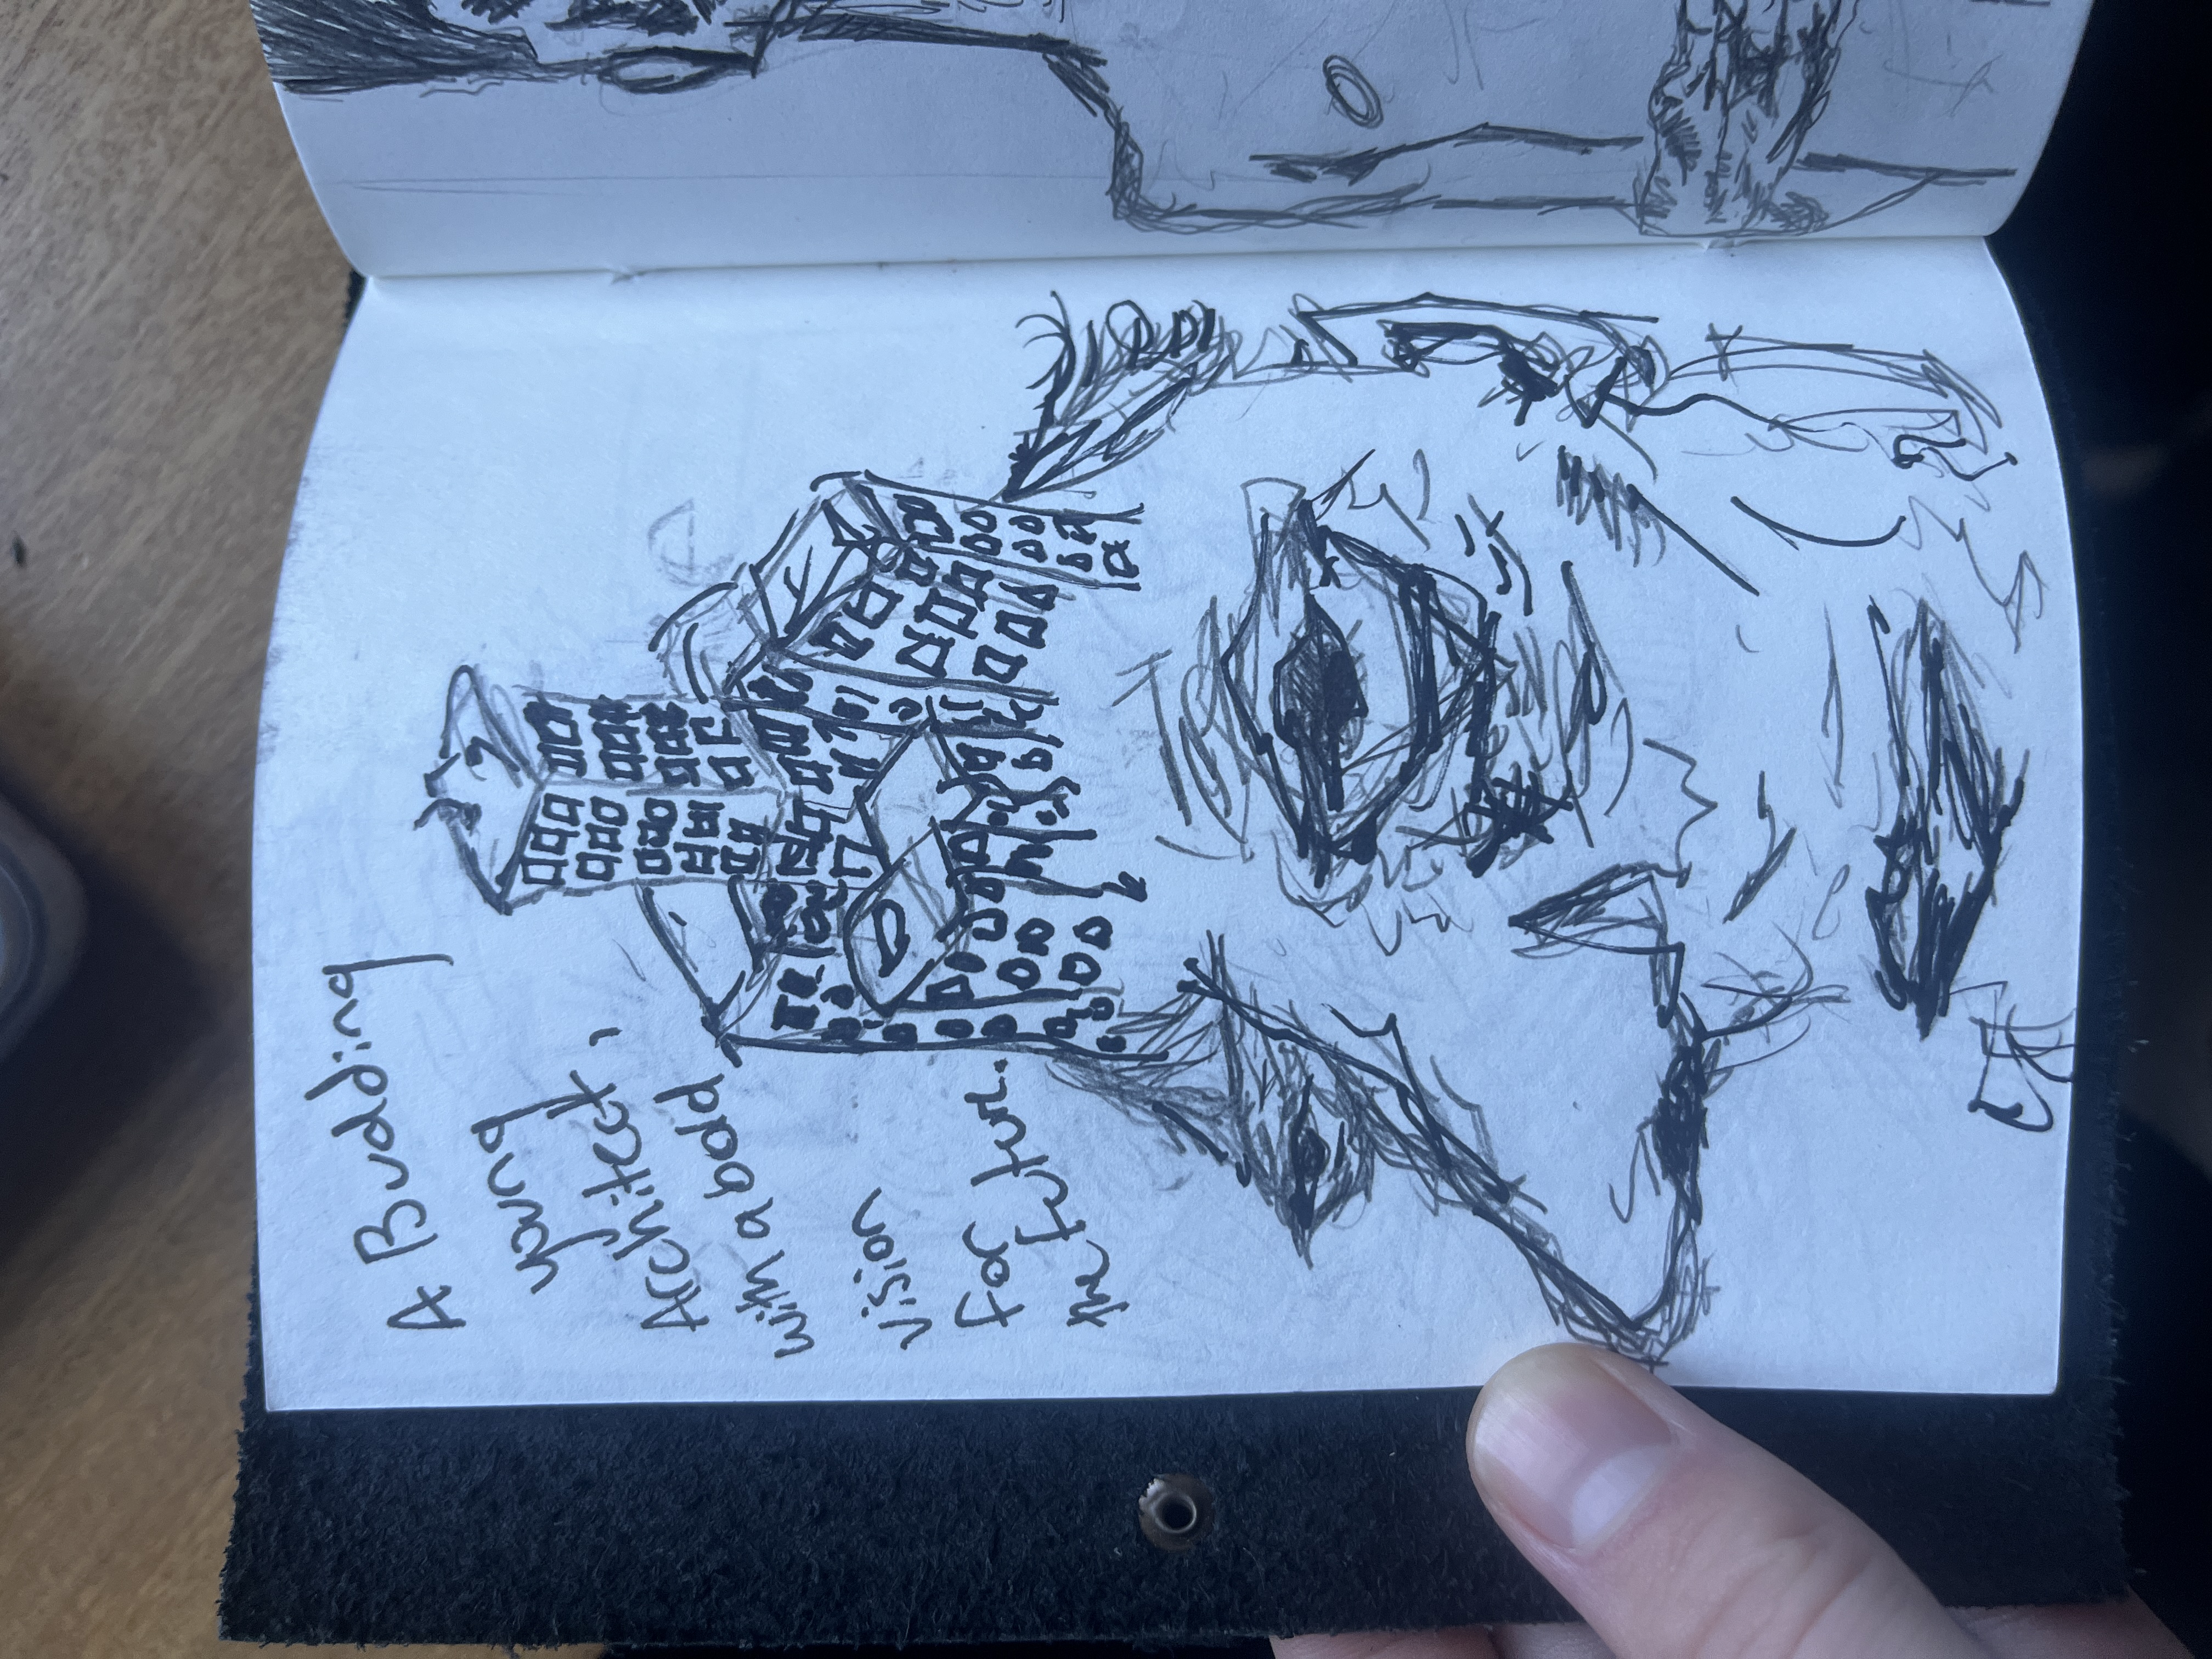 A Budding
young
Architect,
with a bad
vision
For
the Future.